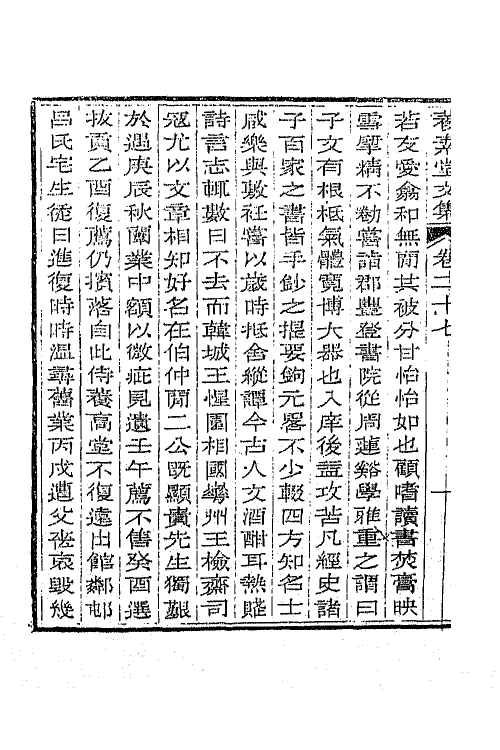 養素堂文集 卷二十七 一
若友愛翕和無間其被分甘怡怡如也顧嗜讀書焚膏映
雪犀精不勌嘗詣郡豐登書院從周蓮谿學雅重之謂曰
子文有根柢氣體寬博大器也入庠後益攻苦凡經史諸
子百家之書皆手鈔之提要鉤元畧不少輟四方知名士
咸樂與數社嘗以歲時抵會縱譚今古人文酒酣耳熱賦
詩言志輒數日不去而韓城王惺園相國華州王檢齋司
冠尤以文章相知好名在伯仲間二公既顯貴先生獨艱
於遇庚辰秋闈業中額以微疵見遺壬午薦不售癸酉選
拔貢乙酉復薦仍擯落自此侍養高堂不復遠出館鄰邨
呂氏宅生徒日進復時時溫尋舊業丙戌遭父喪哀毀幾